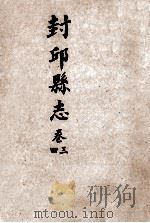 封邱縣志
卷三
四
www.duxiu.com